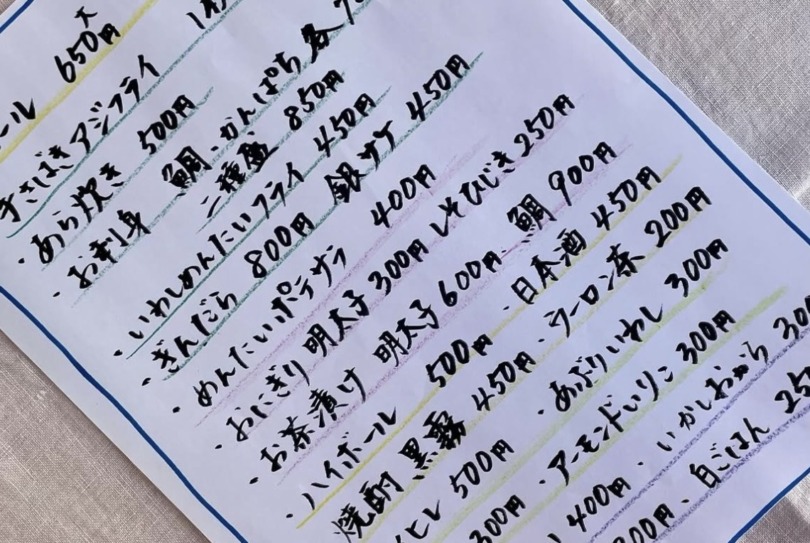 大
ール 650円
手さばきアジフライ 1枚
・あら炊き 500円
・お刺身 鯛、かんぱち 各7
二種盛 850円
・いわしめんたいフライ 450円
・ぎんだら 800円 銀サケ 450円
・めんたいポテサラ 400円
・おにぎり 明太子 300円 しそひじき 250円
・お茶漬け 明太子 600円、鯛 900円
・ハイボール 500円 ・日本酒 450円
焼酎 黒霧 450円・ウーロン茶 200円
ヒレ 500円 ・あぶりいわし 300円
300円 ・アーモンドいりこ 300円
400円 ・いかしおから 300
300円、白ごはん 250